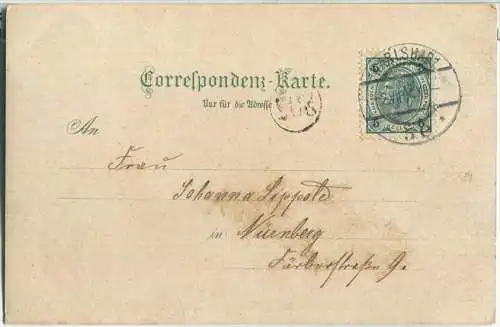 Correspondenz-Karte.
Nur für die Adresse
An
Frau
Johanna Lippold
in Nürnberg
Färberstraße 9.